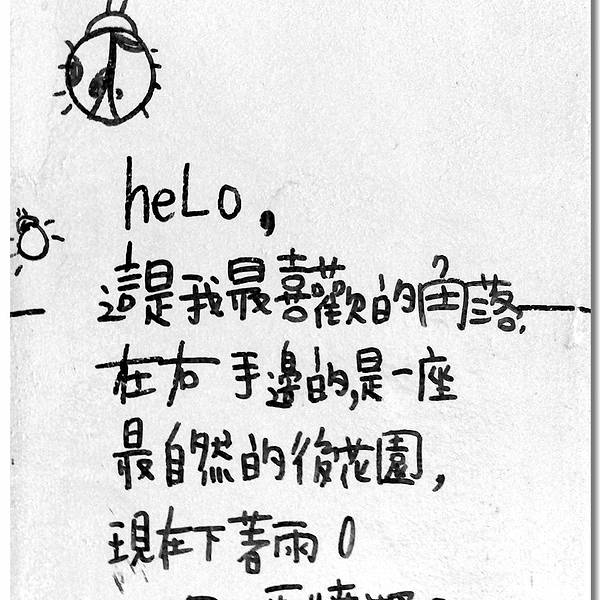 heLo,
這是我最喜歡的角落.
在右手邊的,是一座
最自然的後花園,
現在下著雨。